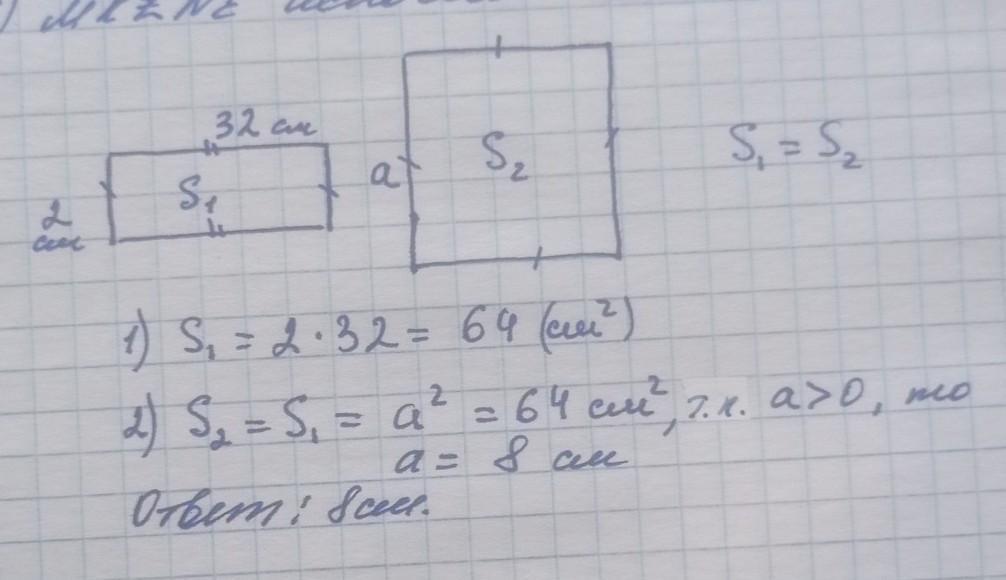 32 см
S₁
2
см
a
S₂
S₁ = S₂
1) S₁ = 2 · 32 = 64 (см²)
2) S₂ = S₁ = a² = 64 см², т.к. a>0, то
a = 8 см
Ответ: 8см.